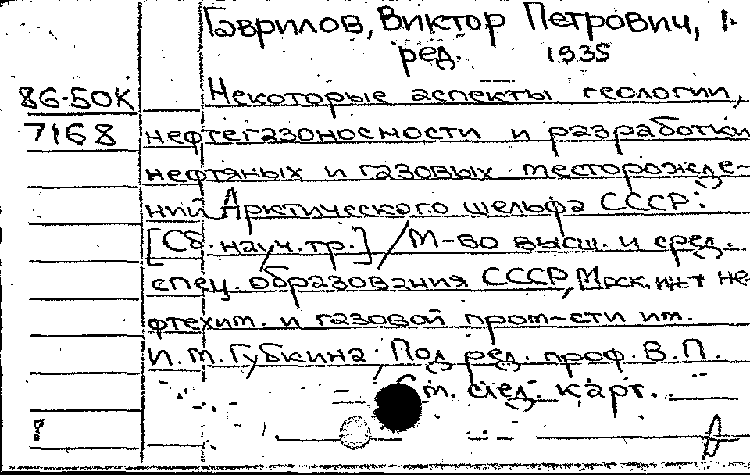 Гаврилов, Виктор Петрович,
ред. 1935
86-50К Некоторые аспекты геологии,
7168 нефтегазоносности и разработки
нефтяных и газовых месторожде-
ний Арктического шельфа СССР:
[Сб. науч. тр.] / М-во высш. и сред.
спец. образования СССР, Моск. ин-т не-
фтехим. и газовой пром-сти им.
И.М. Губкина. Под ред. проф. В.П.
см. след. карт.